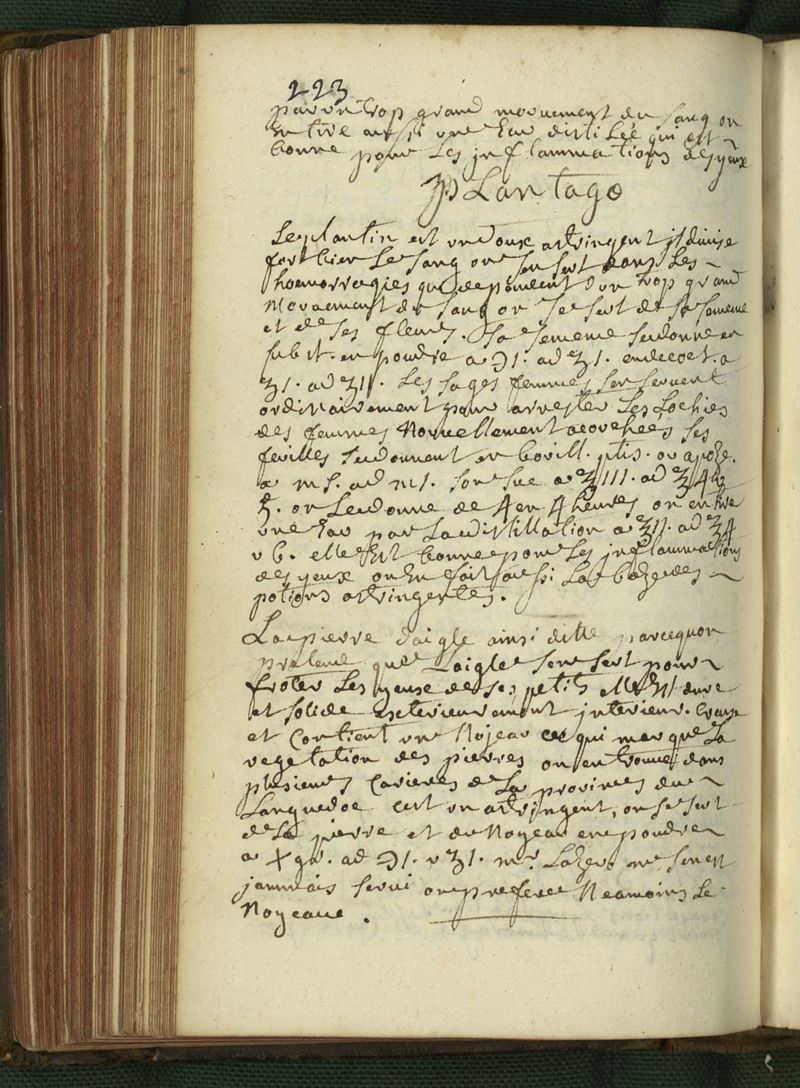 223
par un trop grand mouvement du sang on
en tire aussi une Eau distilée qui est
bonne pour Les inflammations des yeux
PLantago
Le plantin est un doux astringent il divise
fort bien Le sang on s'en sert dans Les
hoemorragies qui dependent d'un trop grand
Mouvement du sang on se sert de sa semence
et de ses fleurs. Sa semence se donne en
subst. en poudre a ℈1. ad ʒ1. en decoct. a
ʒ1. ad ʒ11. Les sages femmes s'en servent
ordinairement pour arrester Les Lochies
des femmes Nouvellement acouchées Ses
feuilles se donnent en bouill. ptis. ou apoze.
a m s. ad m1. son suc a ℥111. ad ℥4
on Le donne de 4 en 4 heures on en tire
une Eau par La distillation a ℥11. ad ℥4
v 6. elle Est bonne pour Les inflammations
des yeux on En fait aussi La baze des
potions astringentes.
La pierre d'aigle ainsi ditte parcequon
pretend que Laigle s'en sert pour
froter Les yeux de ses petits elle Est dure
et solide exterieurement interieur. creuse
et Contient un Noyeau ce qui marque La
vegetation des pierres on en trouve dans
plusieurs Carieres de La province du
Languedoc c'est un astringent, on se sert
de La pierre et du Noyeau en poudre
a X gr. ad ℈1. v ʒ1. mr. Lazero ne s'en est
jammais servi on prefere Neamoins Le
Noyeaue.